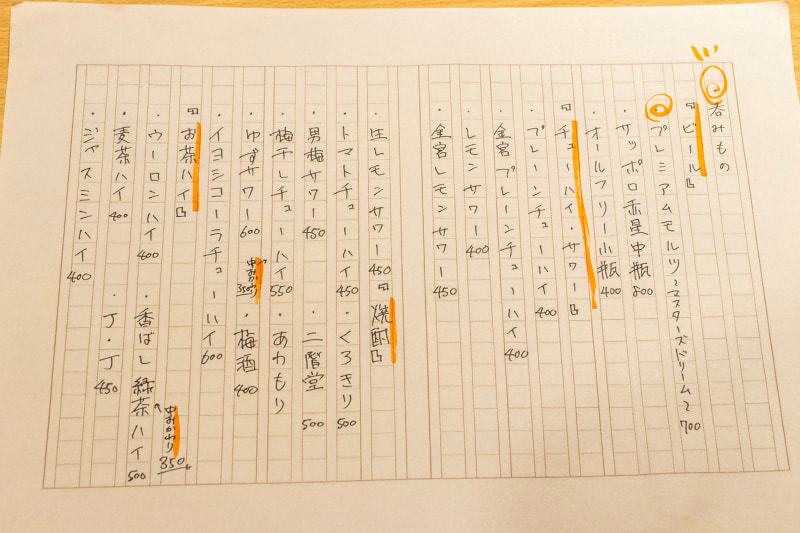 呑みもの
『ビール』
プレミアムモルツ〜マスターズドリーム〜 700
・サッポロ赤星中瓶 800
・オールフリー小瓶 400
『チューハイ・サワー』
・プレーンチューハイ 400
・金宮プレーンチューハイ 400
・レモンサワー 400
・金宮レモンサワー 450
・生レモンサワー 450
・トマトチューハイ 450
・男梅サワー 450
・梅干しチューハイ 550
・ゆずサワー 600
中みかわり 350
・イヨシコーラチューハイ 600
『焼酎』
・くろきり 500
・二階堂 500
・あわもり
・梅酒 400
『お茶ハイ』
・ウーロンハイ 400
・麦茶ハイ 400
・ジャスミンハイ 400
・香ばし緑茶ハイ 500
中おかわり 350
・J・J 450